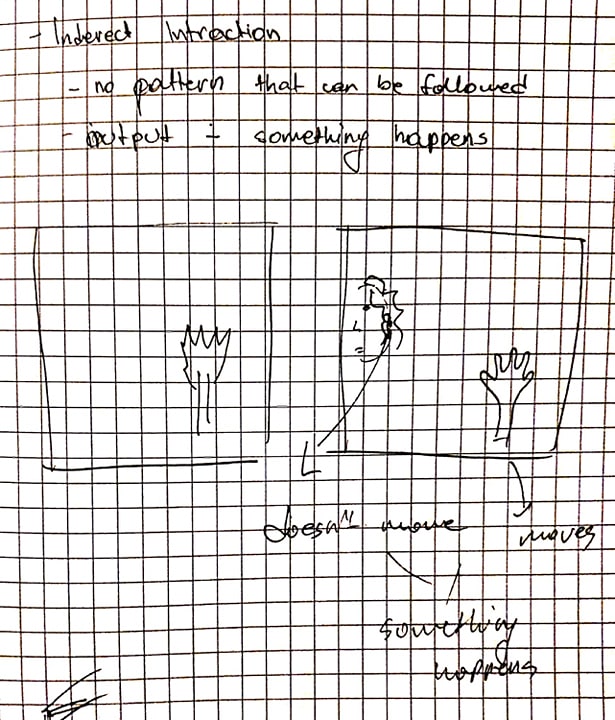 - Inderect Intraction
- no pattern that can be followed
- output - something happens
doesn't move
moves
something
happens